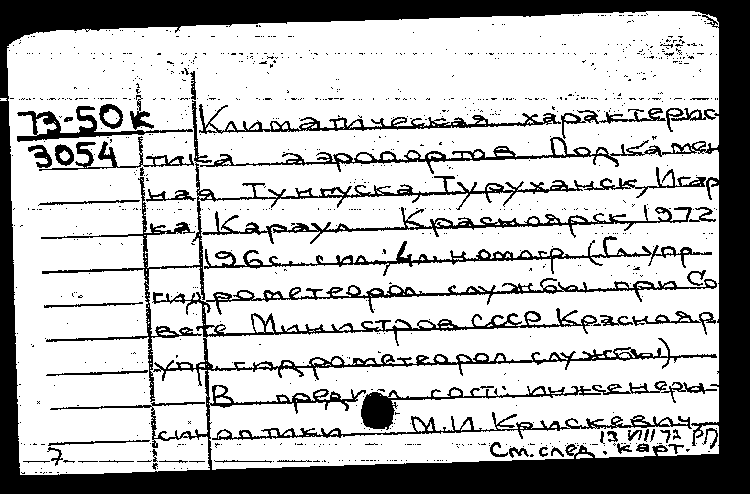 73-50к
3054
Климатическая характерис
тика аэропортов Подкамен
ная Тунгуска, Туруханск, Игар
ка, Караул Красноярск, 1972
196с. с ил.; 4л. номогр. (Гл. упр
гидрометеорол. службы при Со
вете Министров СССР Краснояр.
упр. гидрометеорол. службы).
В предисл. сост.: инженеры-
синоптики М.И. Крискевич
13 VIII 72 РП
См. след. карт.
7